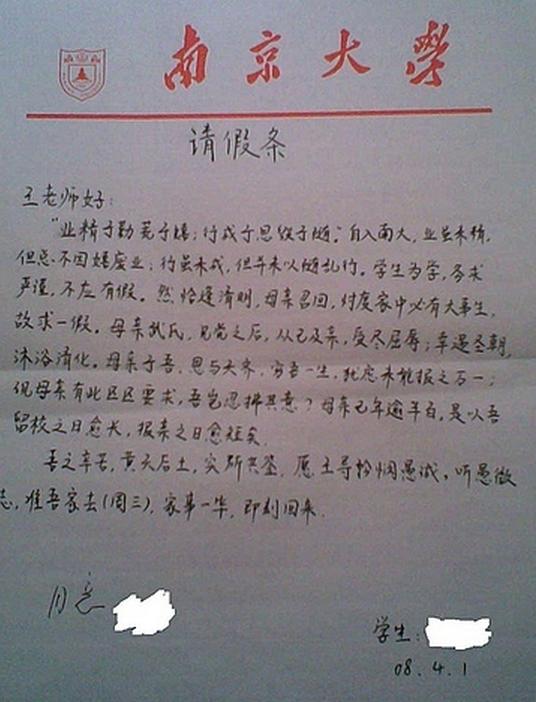 南京大學
请假条
王老师好:
“业精于勤荒于嬉;行成于思毁于随。”自入南大,业虽未精,
但总不因嬉废业;行虽未成,但并未以随乱行。学生为学,务求
严谨,不应有假。然恰逢清明,母亲召回,忖度家中必有大事生,
故求一假。母亲武氏,见党之后,从己及亲,受尽屈辱;幸遇圣朝,
沐浴清化。母亲于吾,恩与天齐,穷吾一生,犹恐未能报之万一;
况母亲有此区区要求,吾岂忍拂其意?母亲已年逾半百,是以吾
留校之日愈长,报亲之日愈短矣.
吾之辛苦,黄天后土,实所共鉴.愿王导矜悯愚诚,听愚微
志,准吾家去(周三).家事一毕,即刻回来.
同意
学生:
08.4.1